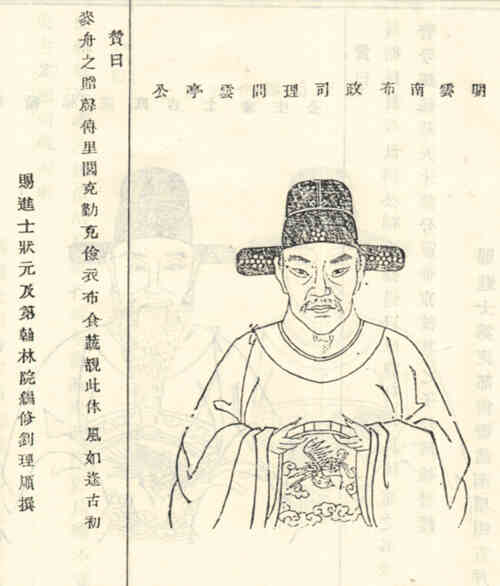 明雲南布政司理問雲亭公
贊曰
麥舟之贈傳里閭克勤克儉衣布食蔬覩此休風如古初
賜進士狀元及第翰林院編修劉理順撰